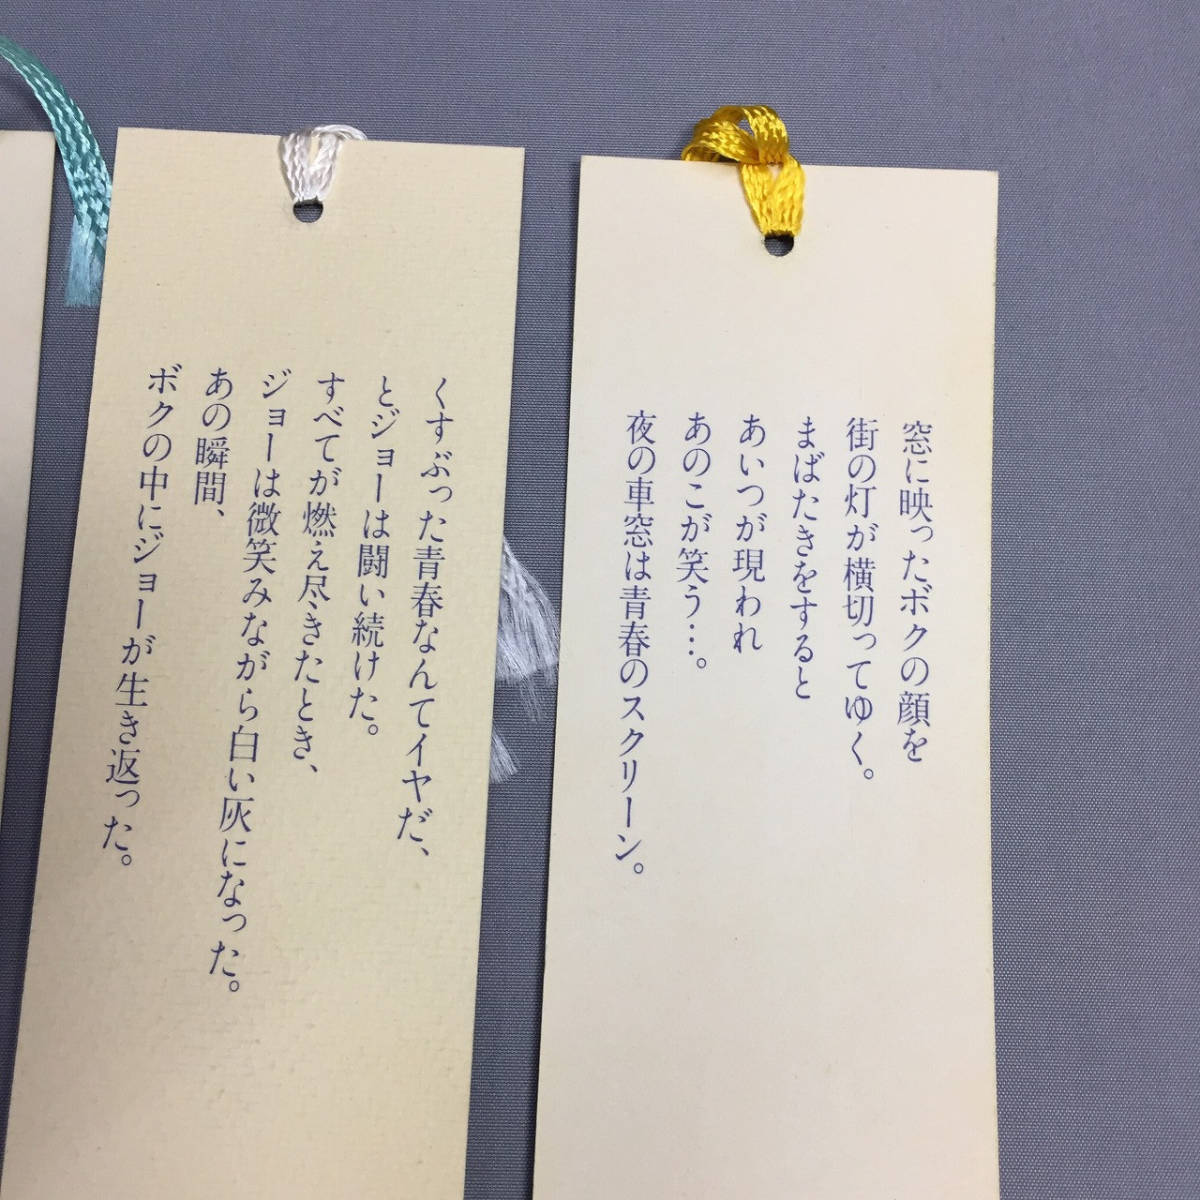 くすぶった青春なんてイヤだ、
とジョーは闘い続けた。
すべてが燃え尽きたとき、
ジョーは微笑みながら白い灰になった。
あの瞬間、
ボクの中にジョーが生き返った。
窓に映ったボクの顔を
街の灯が横切ってゆく。
まばたきをすると
あいつが現われ
あのこが笑う…。
夜の車窓は青春のスクリーン。